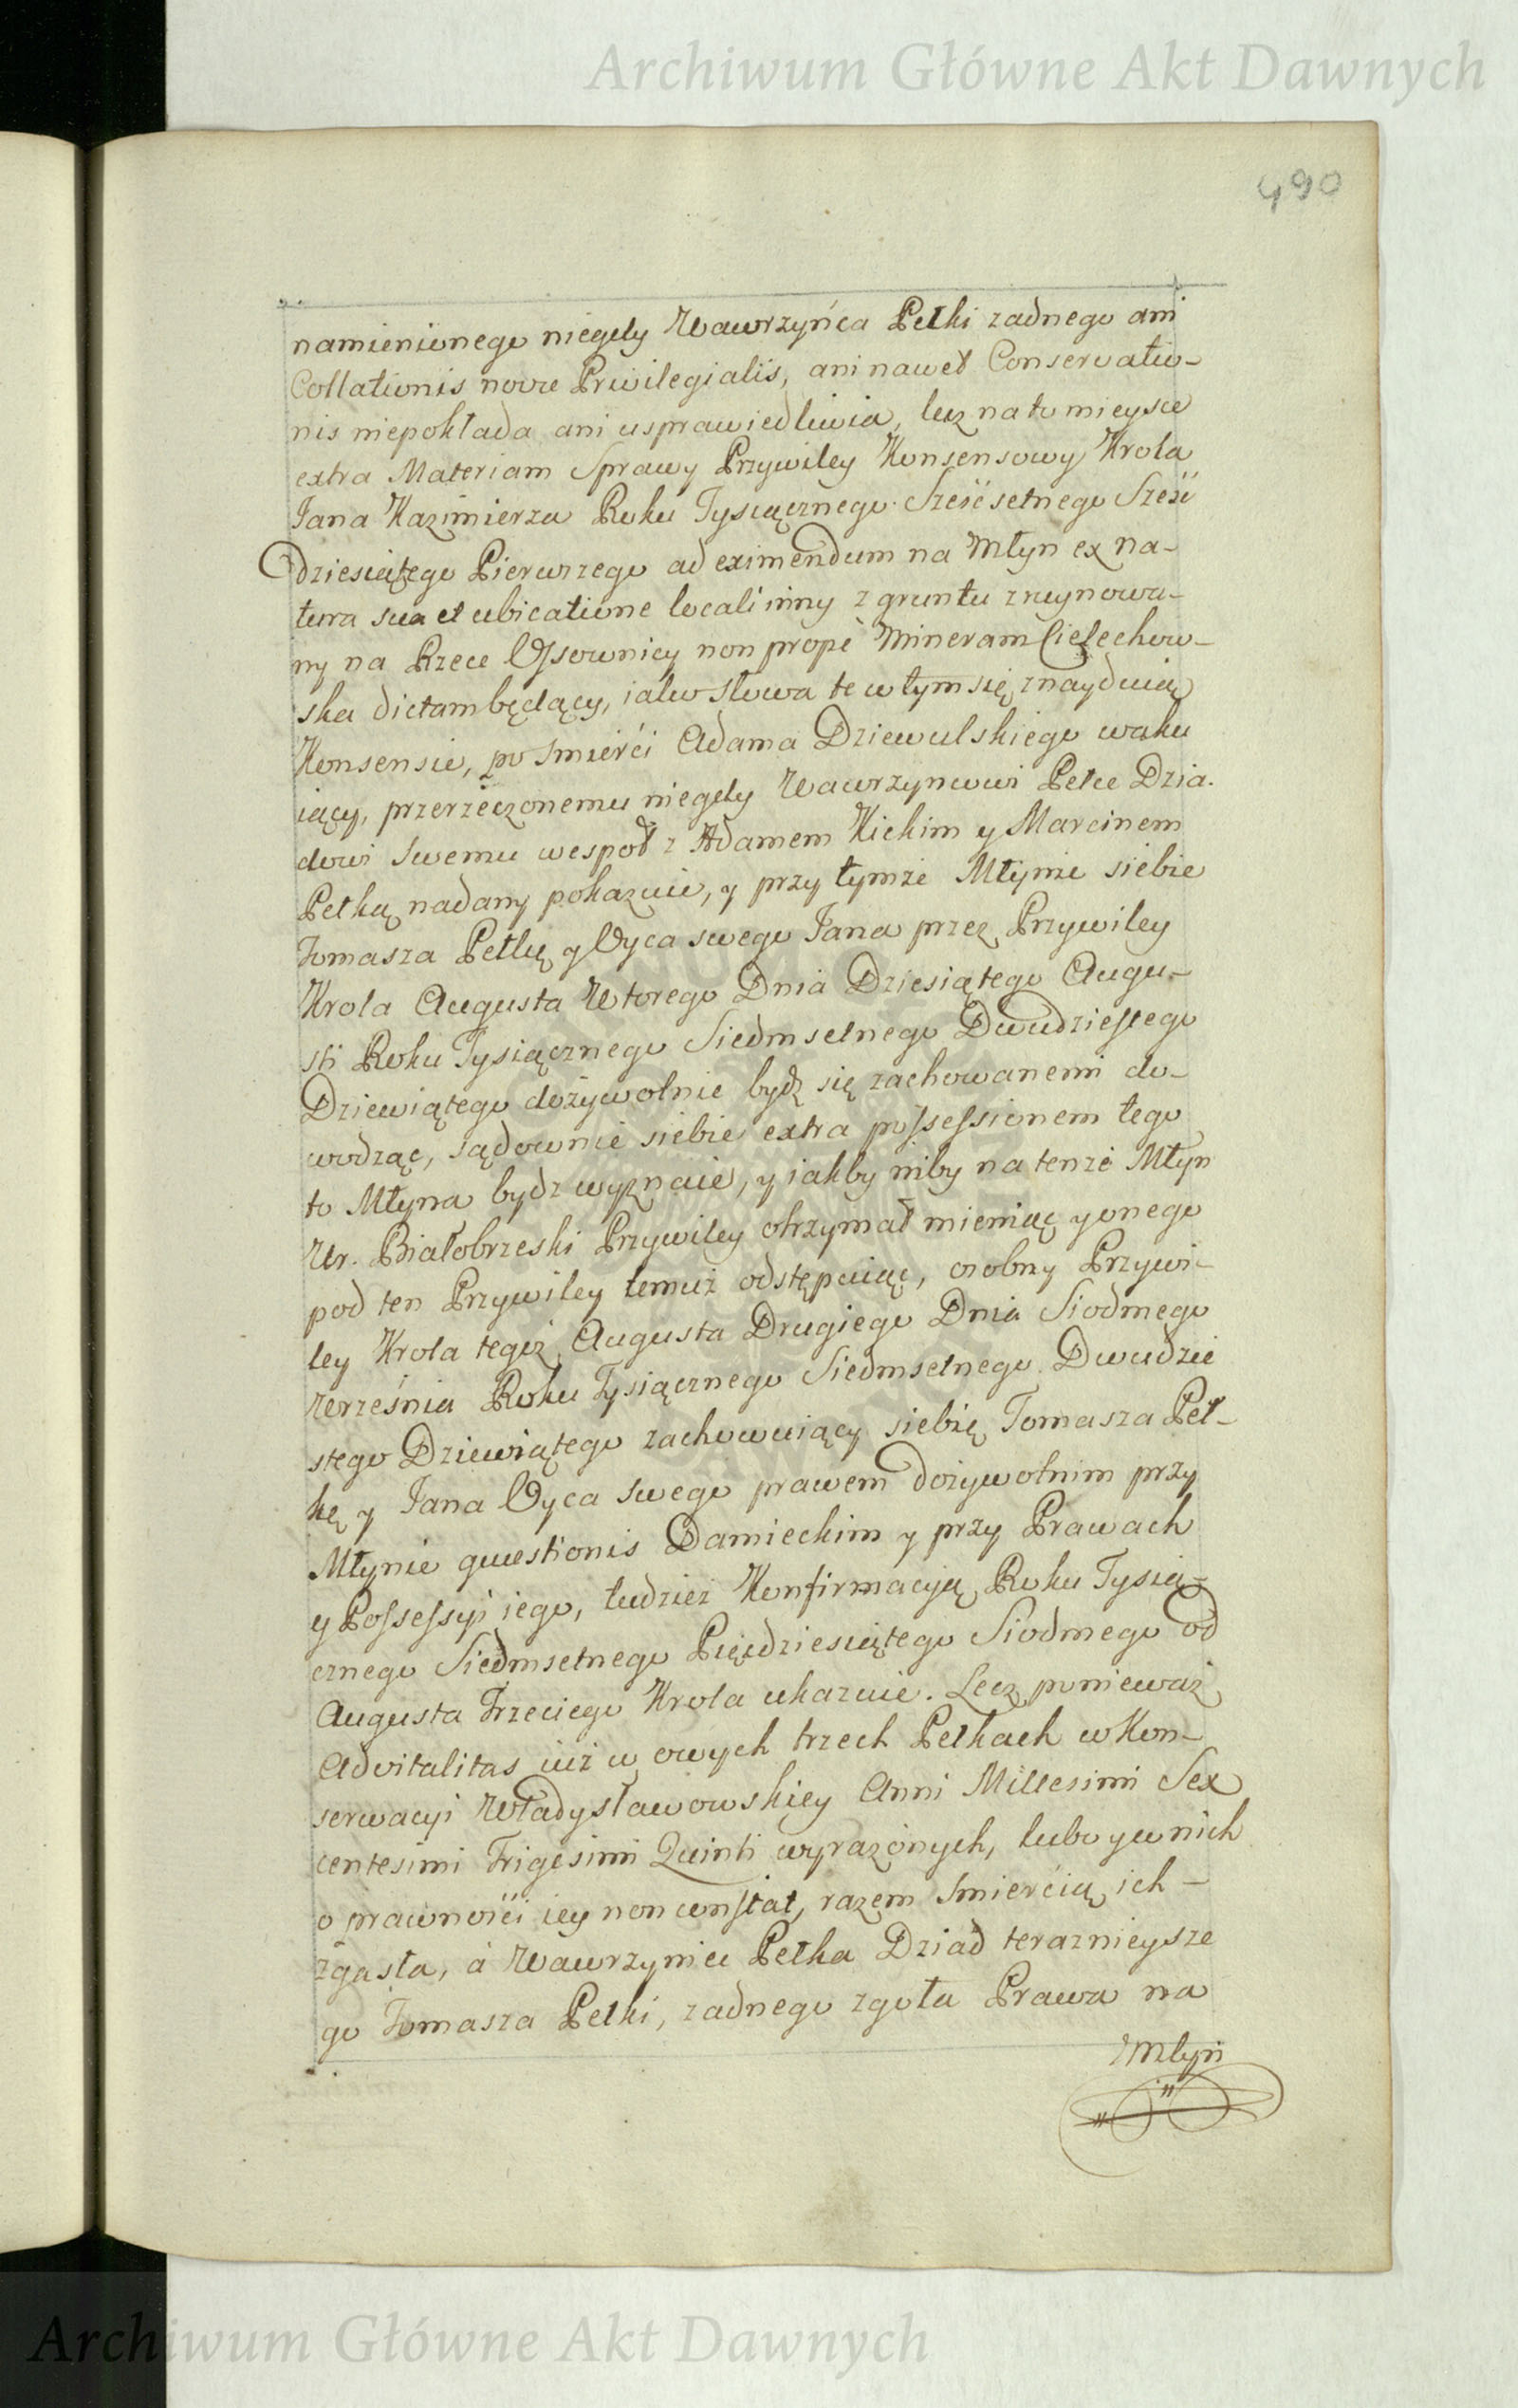 Archiwum Główne Akt Dawnych
490
namienionego niegdy Wawrzyńca Pełki zadnego ani
Collationis novæ Privilegialis, ani nawet Conservatio-
nis niepokłada ani usprawiedliwia, lecz na to mieysce
extra Materiam Sprawy Przywiley Konsensowy Krola
Jana Kazimierza Roku Tysiącznego Sześćsetnego Sześć
dziesiątego Pierwszego ad eximendum na Młyn ex na-
tura sua et ubicatione locali inny z gruntu zruynowa-
ny na Rzece Ossownicy non propè Mineram Cielechow-
ska dictam będący, iako słowa te w tym się znayduią
Konsensie, po smierći Adama Dziewulskiego waku
iący, przerzeczonemu niegdy Wawrzyncowi Pełce Dzia-
dowi swemu wespoł z Adamem Kickim y Marcinem
Pełką nadany pokazuie, y przy tymże Młynie siebie
Tomasza Pełkę y Oyca swego Jana przez Przywiley
Krola Augusta Wtorego Dnia Dziesiątego Augu-
sti Roku Tysiącznego Siedmsetnego Dwudziestego
Dziewiątego dożywotnie bydz się zachowanemi do-
wodząc, sądownie siebie extra possessionem tego
to Młyna bydz wyznaie, y iakby niby na tenże Młyn
Ur. Białobrzeski Przywiley otrzymał mieniąc y onego
pod ten Przywiley temuż odstępuiąc, osobny Przywi-
ley Krola tegoż Augusta Drugiego Dnia Siodmego
Września Roku Tysiącznego Siedmsetnego Dwudzie
stego Dziewiątego zachowuiący siebie Tomasza Peł-
kę y Jana Oyca swego prawem dożywotnim przy
Młynie quæstionis Damieckim y przy Prawach
y Possessyi iego, tudzież Konfirmacyą Roku Tysią-
cznego Siedmsetnego Pięćdziesiątego Siodmego od
Augusta Trzeciego Krola ukazuie. Lecz ponieważ
Advitalitas iuż w owych trzech Pełkach w Kon-
serwacyi Władysławowskiey Anni Millesimi Sex
centesimi Trigesimi Quinti wyrażonych, lubo y w nich
o prawności iey non constat, razem smiercią ich -
zgasła, à Wawrzyniec Pełka Dziad teraznieysze
go Tomasza Pełki, zadnego zgoła Prawa na
Młyn
Archiwum Główne Akt Dawnych